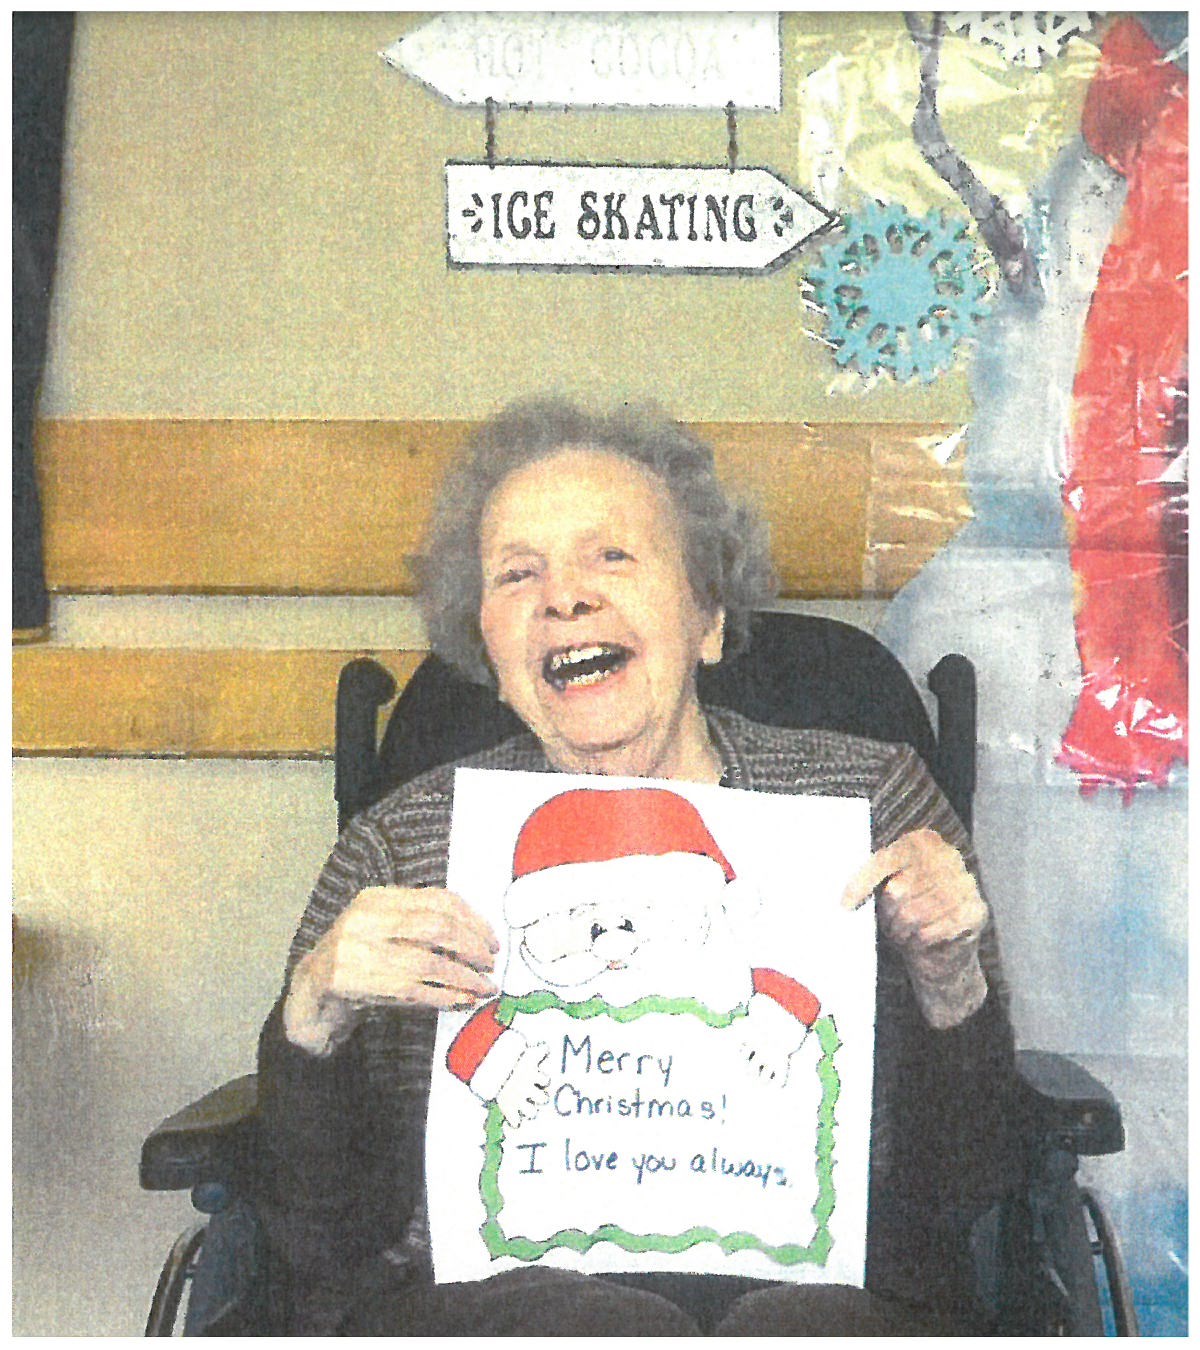 HOT COCOA
ICE SKATING
Merry
Christmas!
I love you always.